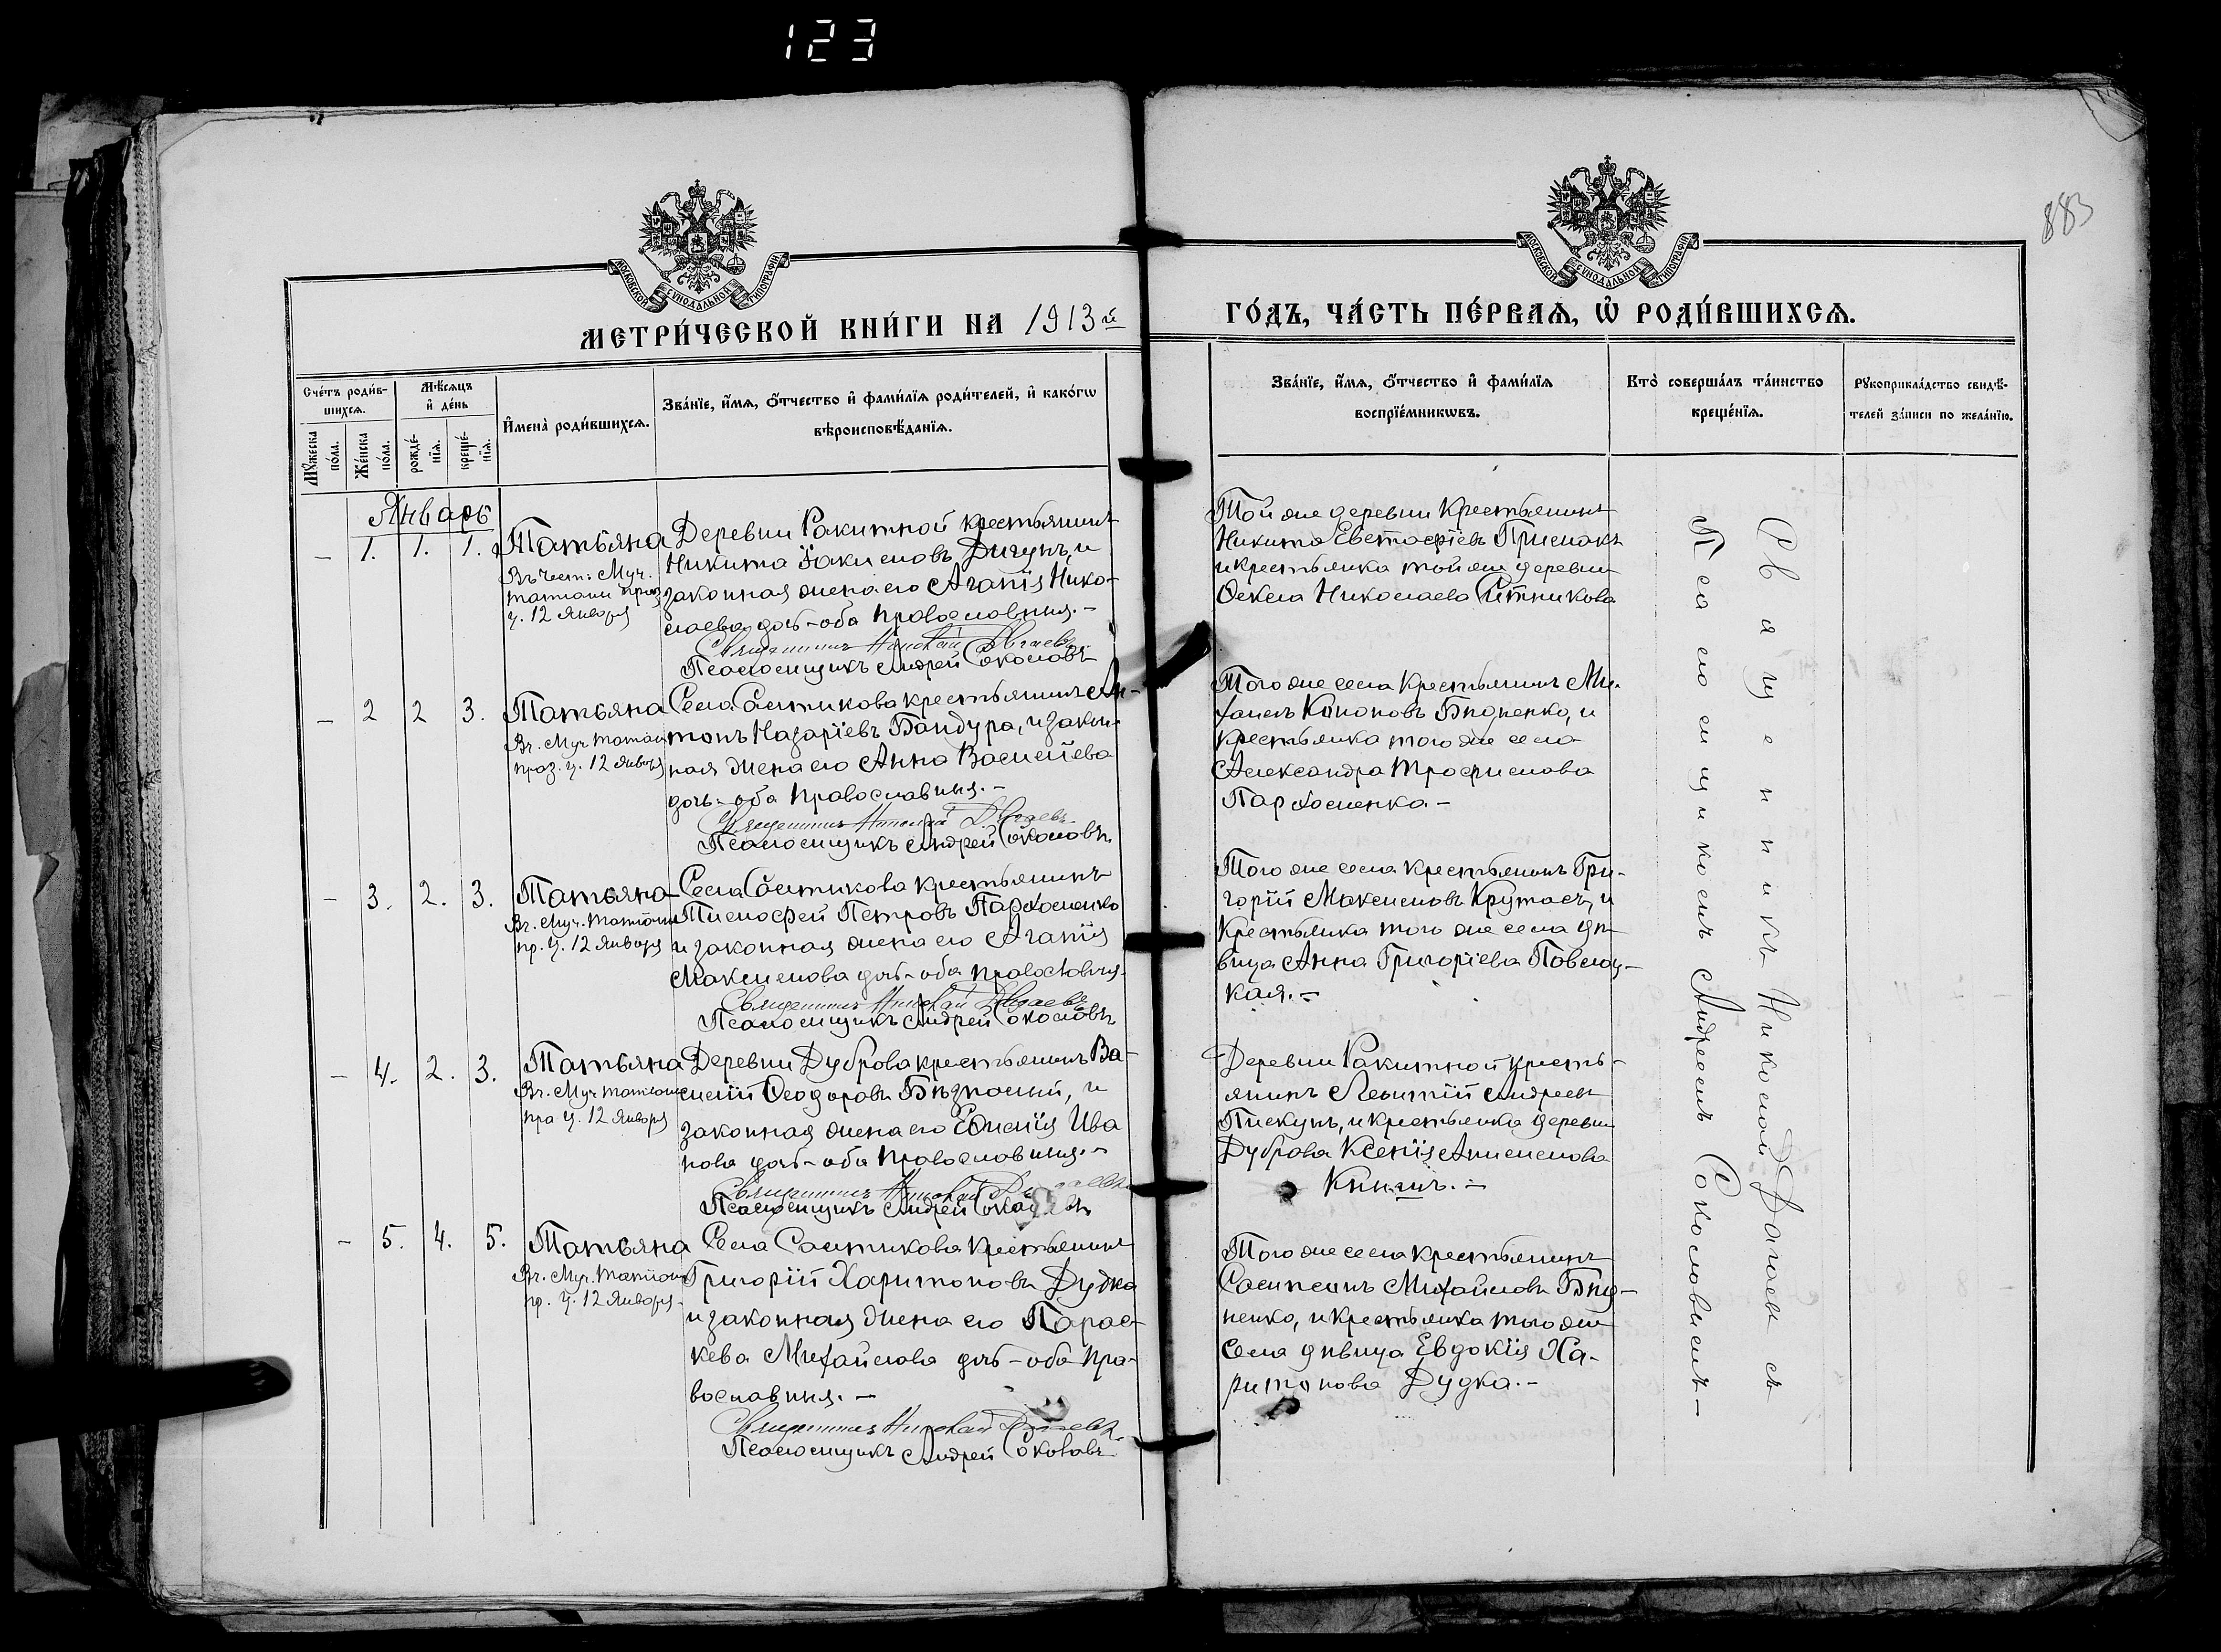 123
883
МОСКОВСКОЙ СѴНОДАЛЬНОЙ ТИПОГРАФІИ
МОСКОВСКОЙ СѴНОДАЛЬНОЙ ТИПОГРАФІИ
МЕТРИ́ЧЕСКОЙ КНИ́ГИ НА 1913й
ГО́ДЪ, ЧА́СТЬ ПЕ́РВАѦ, Ѽ РОДИ́ВШИХСѦ.
Сче́тъ роди́в-
шихсѧ.
Мꙋ́жеска
по́ла.
Же́нска
по́ла.
Мѣ́сѧцъ
и҆ де́нь
рожде́-
нїѧ.
креще́-
нїѧ.
И҆мена̀ роди́вшихсѧ.
Зва́нїе, и҆́мѧ, ѻ҆́тчество и҆ фами́лїѧ роди́телей, и҆ како́гѡ
вѣроисповѣ́данїѧ.
Зва́нїе, и҆́мѧ, ѻ҆́тчество и҆ фами́лїѧ
воспрїе́мникѡвъ.
Кто̀ соверша́лъ та́инство
креще́нїѧ.
Рꙋкоприкла́дство свидѣ́-
телей за́писи по жела́нїю.
Январь
- 1. 1. 1.
Татьяна
Въ чест. Муч.
Татіани праз.
ч. 12 Января
Деревни Ракитной крестьянинъ
Никита Іакимовъ Дигунъ, и
законная жена его Агапія Нико-
лаева дочь - оба православныя. -
Священникъ Николай
Псаломщикъ Андрей Соколовъ
Той же деревни крестьянинъ
Никита Евстафіевъ Примакъ
и крестьянка той же деревни
Ѳекла Николаева Ситникова
- 2 2 3.
Татьяна
Вч. Муч Татіан
праз. ч. 12 Января
Села Салтикова крестьянинъ Ан-
тонъ Назаріевъ Бандура, и закон-
ная жена его Анна Василіева
дочь - оба Православныя. -
Священникъ Николай
Псаломщикъ Андрей Соколовъ
Того же села крестьянинъ Ми-
хаилъ Кононовъ Бидненко, и
крестьянка того же села
Александра Трофимова
Пархоменко -
- 3. 2. 3.
Татьяна
Вч. Муч. Татіани
пр. ч. 12 Января
Села Салтикова крестьянинъ
Тимофей Петровъ Пархоменко
и законная жена его Агапія
Максимова дочь - оба православныя.
Священникъ Николай
Псаломщикъ Андрей Соколовъ
Того же села крестьянинъ Гри-
горій Максимовъ Крутась, и
крестьянка того же села дѣ-
вица Анна Григоріева Повслоц-
кая. -
- 4. 2. 3.
Татьяна
Вч. Муч Татіани
пра ч. 12 Января
Деревни Дуброва крестьянинъ Ва-
силій Ѳеодоровъ и
законная жена его Евѳимія Ива
нова дочь - оба Православныя. -
Священникъ Николай
Псаломщикъ Андрей Соколовъ
Деревни Ракитной кресть-
янинъ Леонтій Андреевъ
Пискунъ, и крестьянка деревни
Дуброва Ксенія Анисимова
Книшъ. -
- 5. 4. 5.
Татьяна
Вч. Муч. Татіани
пр. ч. 12 Января.
Села Салтикова крестьянинъ
Григорій Харитоновъ Дудка
и законная жена его Парас-
кева Михайлова дочь - оба пра-
вославныя. -
Священникъ Николай
Псаломщикъ Андрей Соколовъ
Того же села крестьянинъ
Сампсонъ Михайловъ Бид-
ненко, и крестьянка того же
села дѣвица Евдокія Ха-
ритонова Дудка. -
Священникъ Николай съ
Псаломщикомъ Андреемъ Соколовымъ -